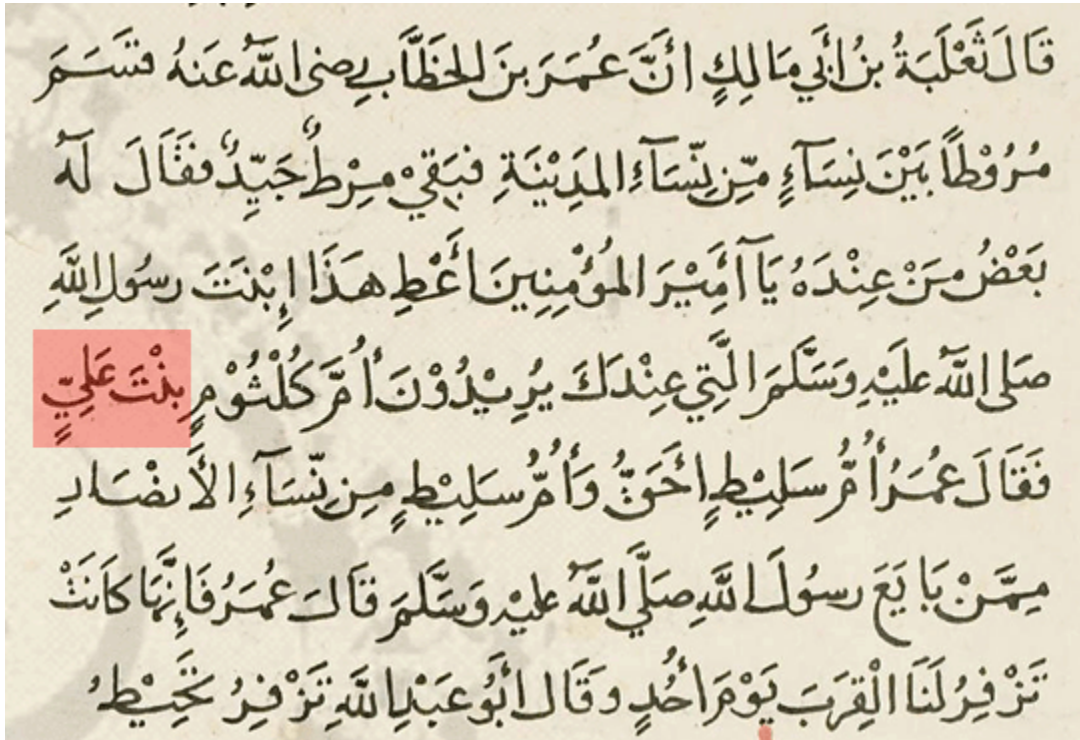 قَالَ ثَعْلَبَةُ بنُ اَبِي مَالِكٍ اَنَّ عُمَرَ بنَ الخَطَّابِ رضى اللّٰه عَنهُ قسَمَ
مُرُوْطًا بَيْنَ نِسَآءٍ مِّن نِّسَآءِ المَدِيْنَةِ فبَقِيْ مِرْطٌ جَيِّدٌ فقَالَ لَهُ
بَعْضُ مَنْ عِنْدَهُ يَآ اَمِيْرَ المُؤْمِنِينَ أَعْطِ هَذَا إِبْنَتَ رسُولِ اللَّهِ
صَلى اللّٰه عليَهِ وَسَلَّمَ الَّتِي عِنْدَكَ يُرِيْدُوْنَ أُمَّ كُلْثُوْمٍ بِنْتَ عَلِيٍّ
فَقَالَ عُمَرُ أُمُّ سَلِيْطٍ أَحَقُّ وَأُمُّ سَلِيْطٍ مِن نِّسَآءِ الأَنصْاَرِ
مِمَّنْ بَايَعَ رسُولَ اللَّهِ صَلَّي اللّٰهُ عليْهِ وَسَلَّمَ قَالَ عُمَرُ فَإِنَّهَا كَانَتْ
تَزْفِرُ لَنَا الْقِرَبَ يَوْمَ أُحُدٍ وقَالَ أَبُو عَبْدِ اللَّهِ تَزْفِرُ تَخِيْطُ